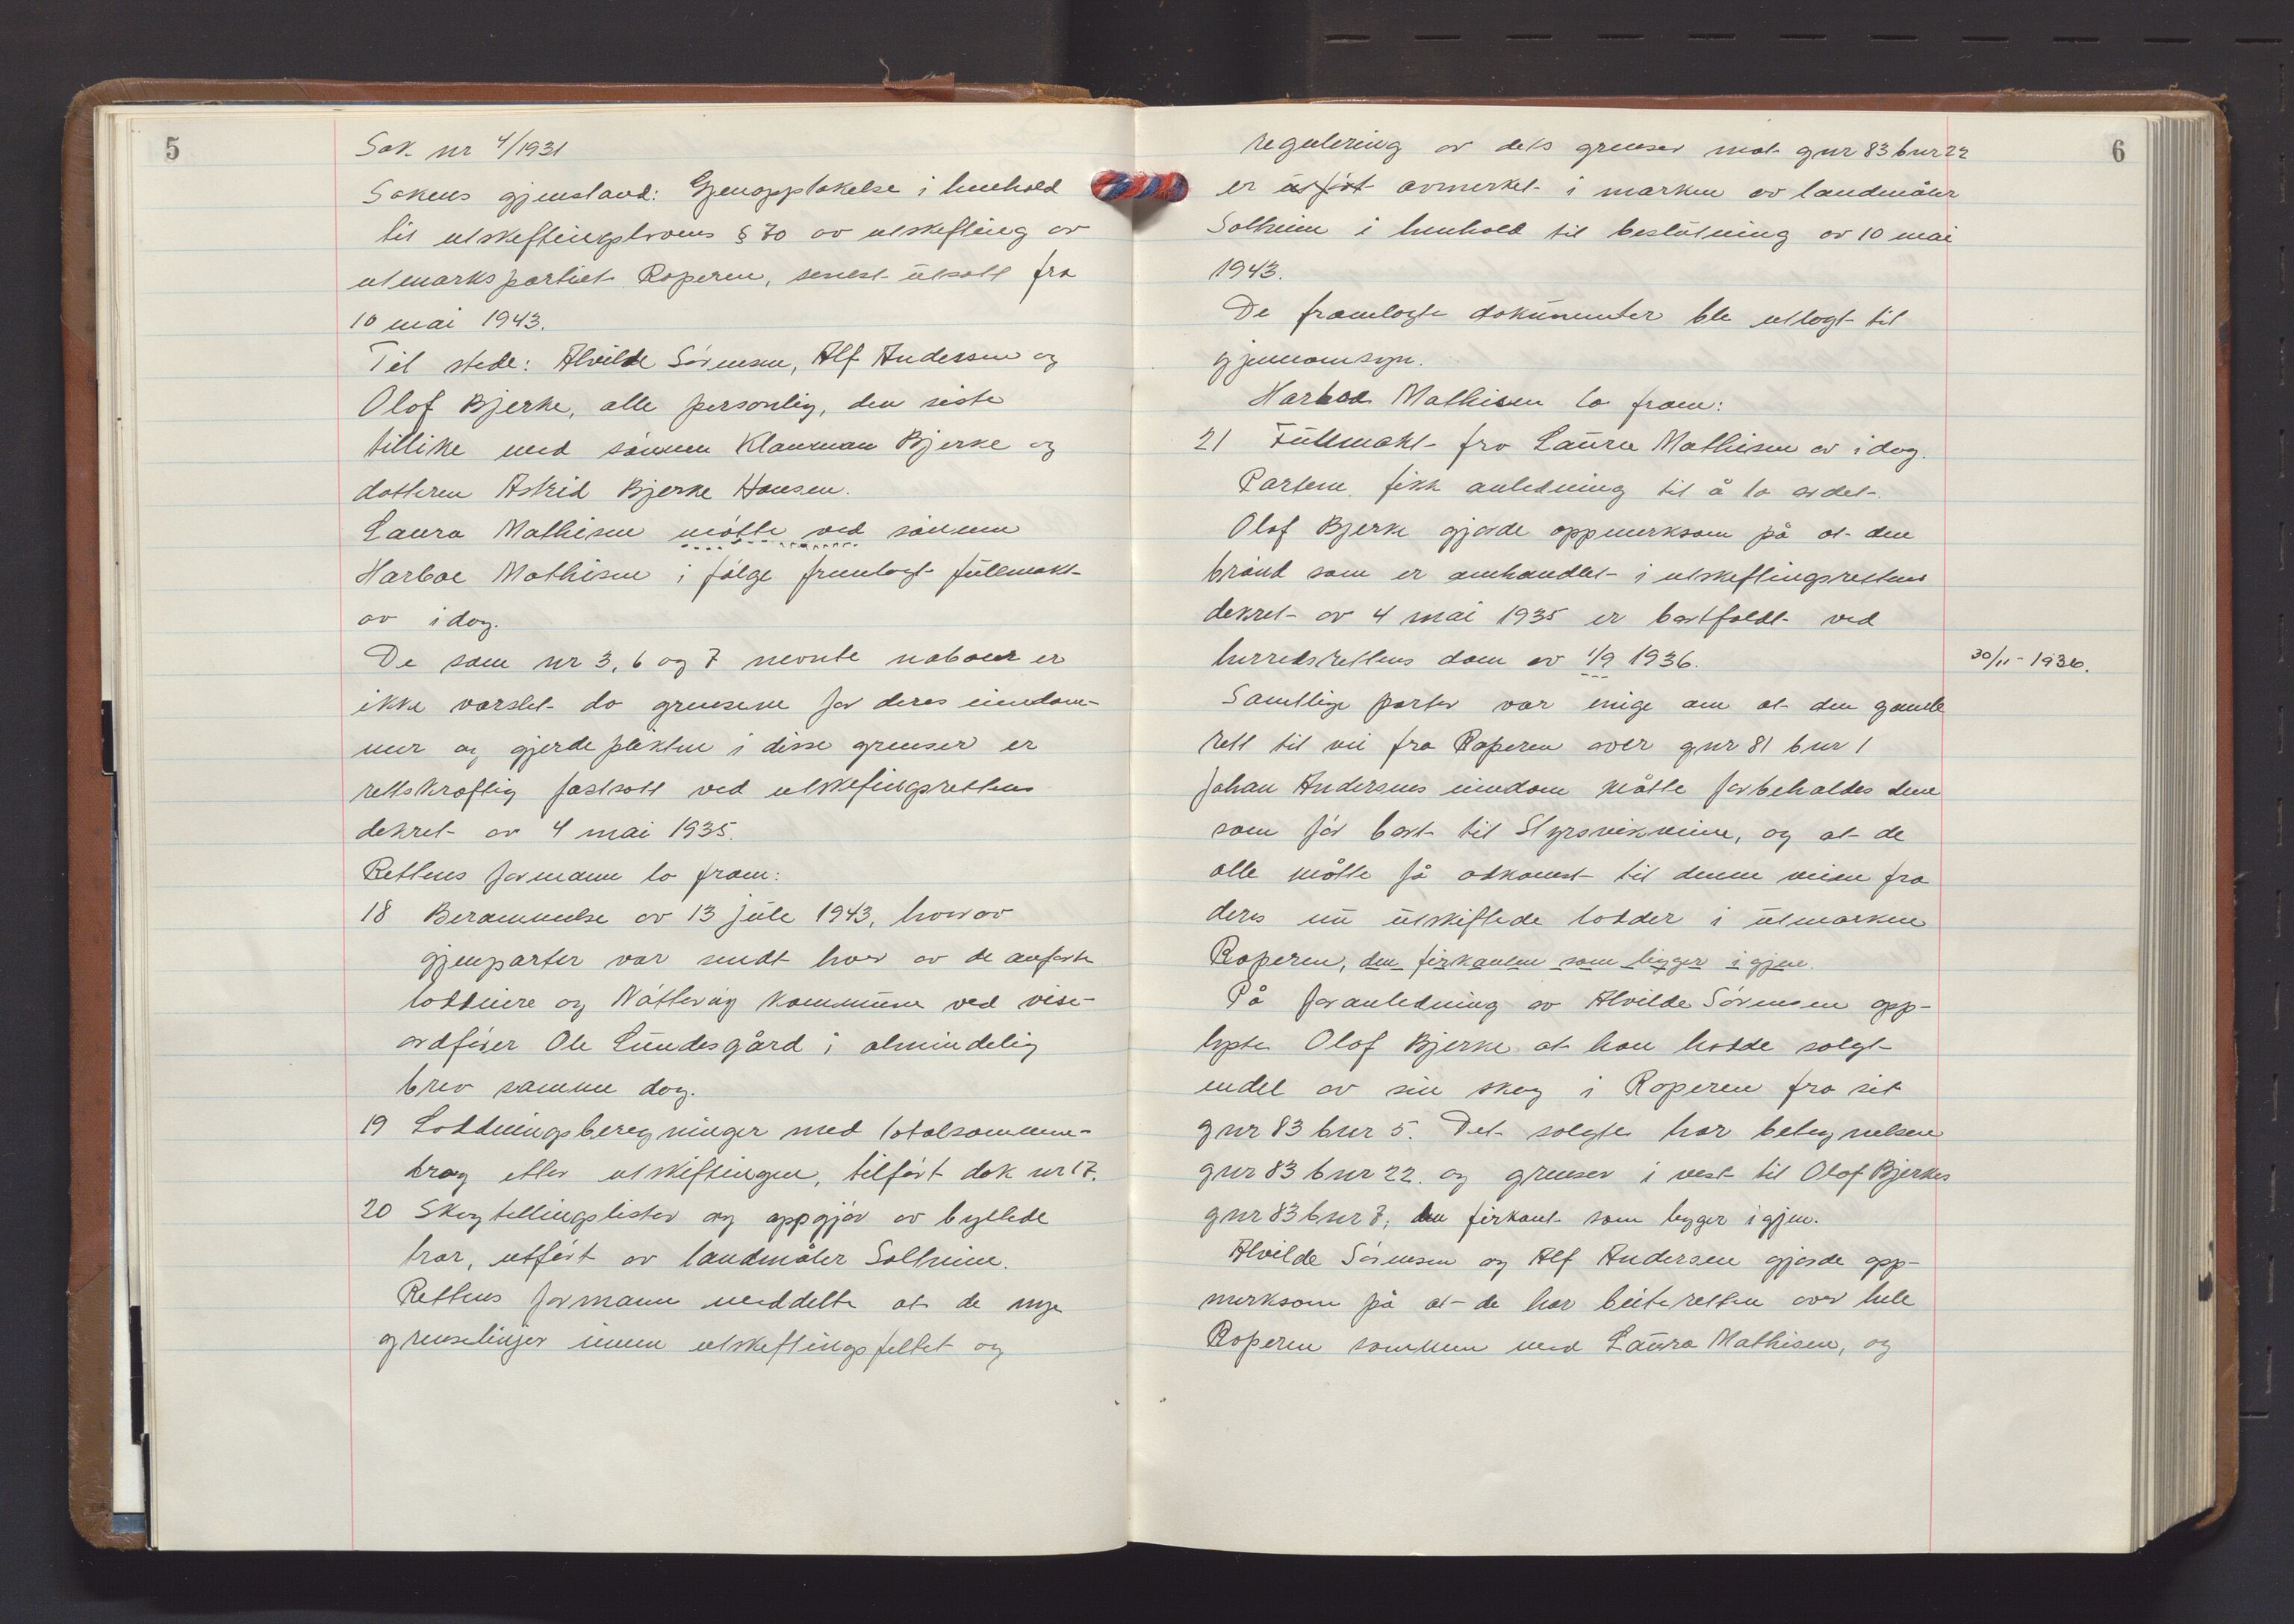 5
Sak nr 4/1931
Sakens gjenstand: Gjenopptakelse i henhold
til utskiftingslovens § 70 av utskifting av
utmarkspartiet Roperen, senest utsatt fra
10 mai 1943.
Til stede: Alvilde Sørensen, Alf Andersen og
Olaf Bjerke, alle personlig, den siste
tillike med sønnen Klaurman Bjerke og
datteren Astrid Bjerke Hansen.
Laura Mathisen møtte ved sønnen
Harboe Mathisen i følge fremlagt fullmakt
av idag.
De som nr 3, 6 og 7 nevnte naboer er
ikke varslet da grensene for deres eiendom-
mer og gjerdeplikten i disse grenser er
rettskraftig fastsatt ved utskiftingsrettens
dekret av 4 mai 1935.
Rettens formann la fram:
18 Berammelse av 13 juli 1943, hvorav
gjenparter var sendt hver av de anførte
loddeiere og Nøtterøy kommune ved vise-
ordfører Ole Lundesgård i almindelig
brev samme dag.
19 Loddningsberegninger med totalsammen-
drag etter utskiftingen, tilført dok nr 17.
20 Skogtellingslister og oppgjør av byttede
trær, utført av landmåler Solheim.
Rettens formann meddelte at de nye
grenselinjer innen utskiftingsfeltet og
6
regulering av dets grenser mot gnr 83 bnr 22
er utført avmerket i marken av landmåler
Solheim i henhold til beslutning av 10 mai
1943.
De framlagte dokumenter ble utlagt til
gjennomsyn.
Harboe Mathisen la fram:
21 Fullmakt fra Laura Mathisen av idag.
Partene fikk anledning til å ta ordet.
Olaf Bjerke gjorde oppmerksom på at den
brønd som er omhandlet i utskiftingsrettens
dekret av 4 mai 1935 er bortfaldt ved
herredsrettens dom av 1/9 1936.
30/11-1936.
Samtlige parter var enige om at den gamle
rett til vei fra Roperen over gnr 81 bnr 1
Johan Andersens eiendom måtte forbeholdes dem
som før bort til Styrsvikveien, og at de
alle måtte få adkomst til denne veien fra
deres nu utskiftede lodder i utmarken
Roperen, den firkanten som ligger igjen.
På foranledning av Alvilde Sørensen opp-
lyste Olaf Bjerke at han hadde solgt
endel av sin skog i Roperen fra sit
gnr 83 bnr 5. Det solgte har betegnelsen
gnr 83 bnr 22. og grenser i vest til Olaf Bjerkes
gnr 83 bnr 7, den firkant som ligger igjen.
Alvilde Sørensen og Alf Andersen gjorde opp-
merksom på at de har beiteretten over hele
Roperen sammen med Laura Mathisen, og